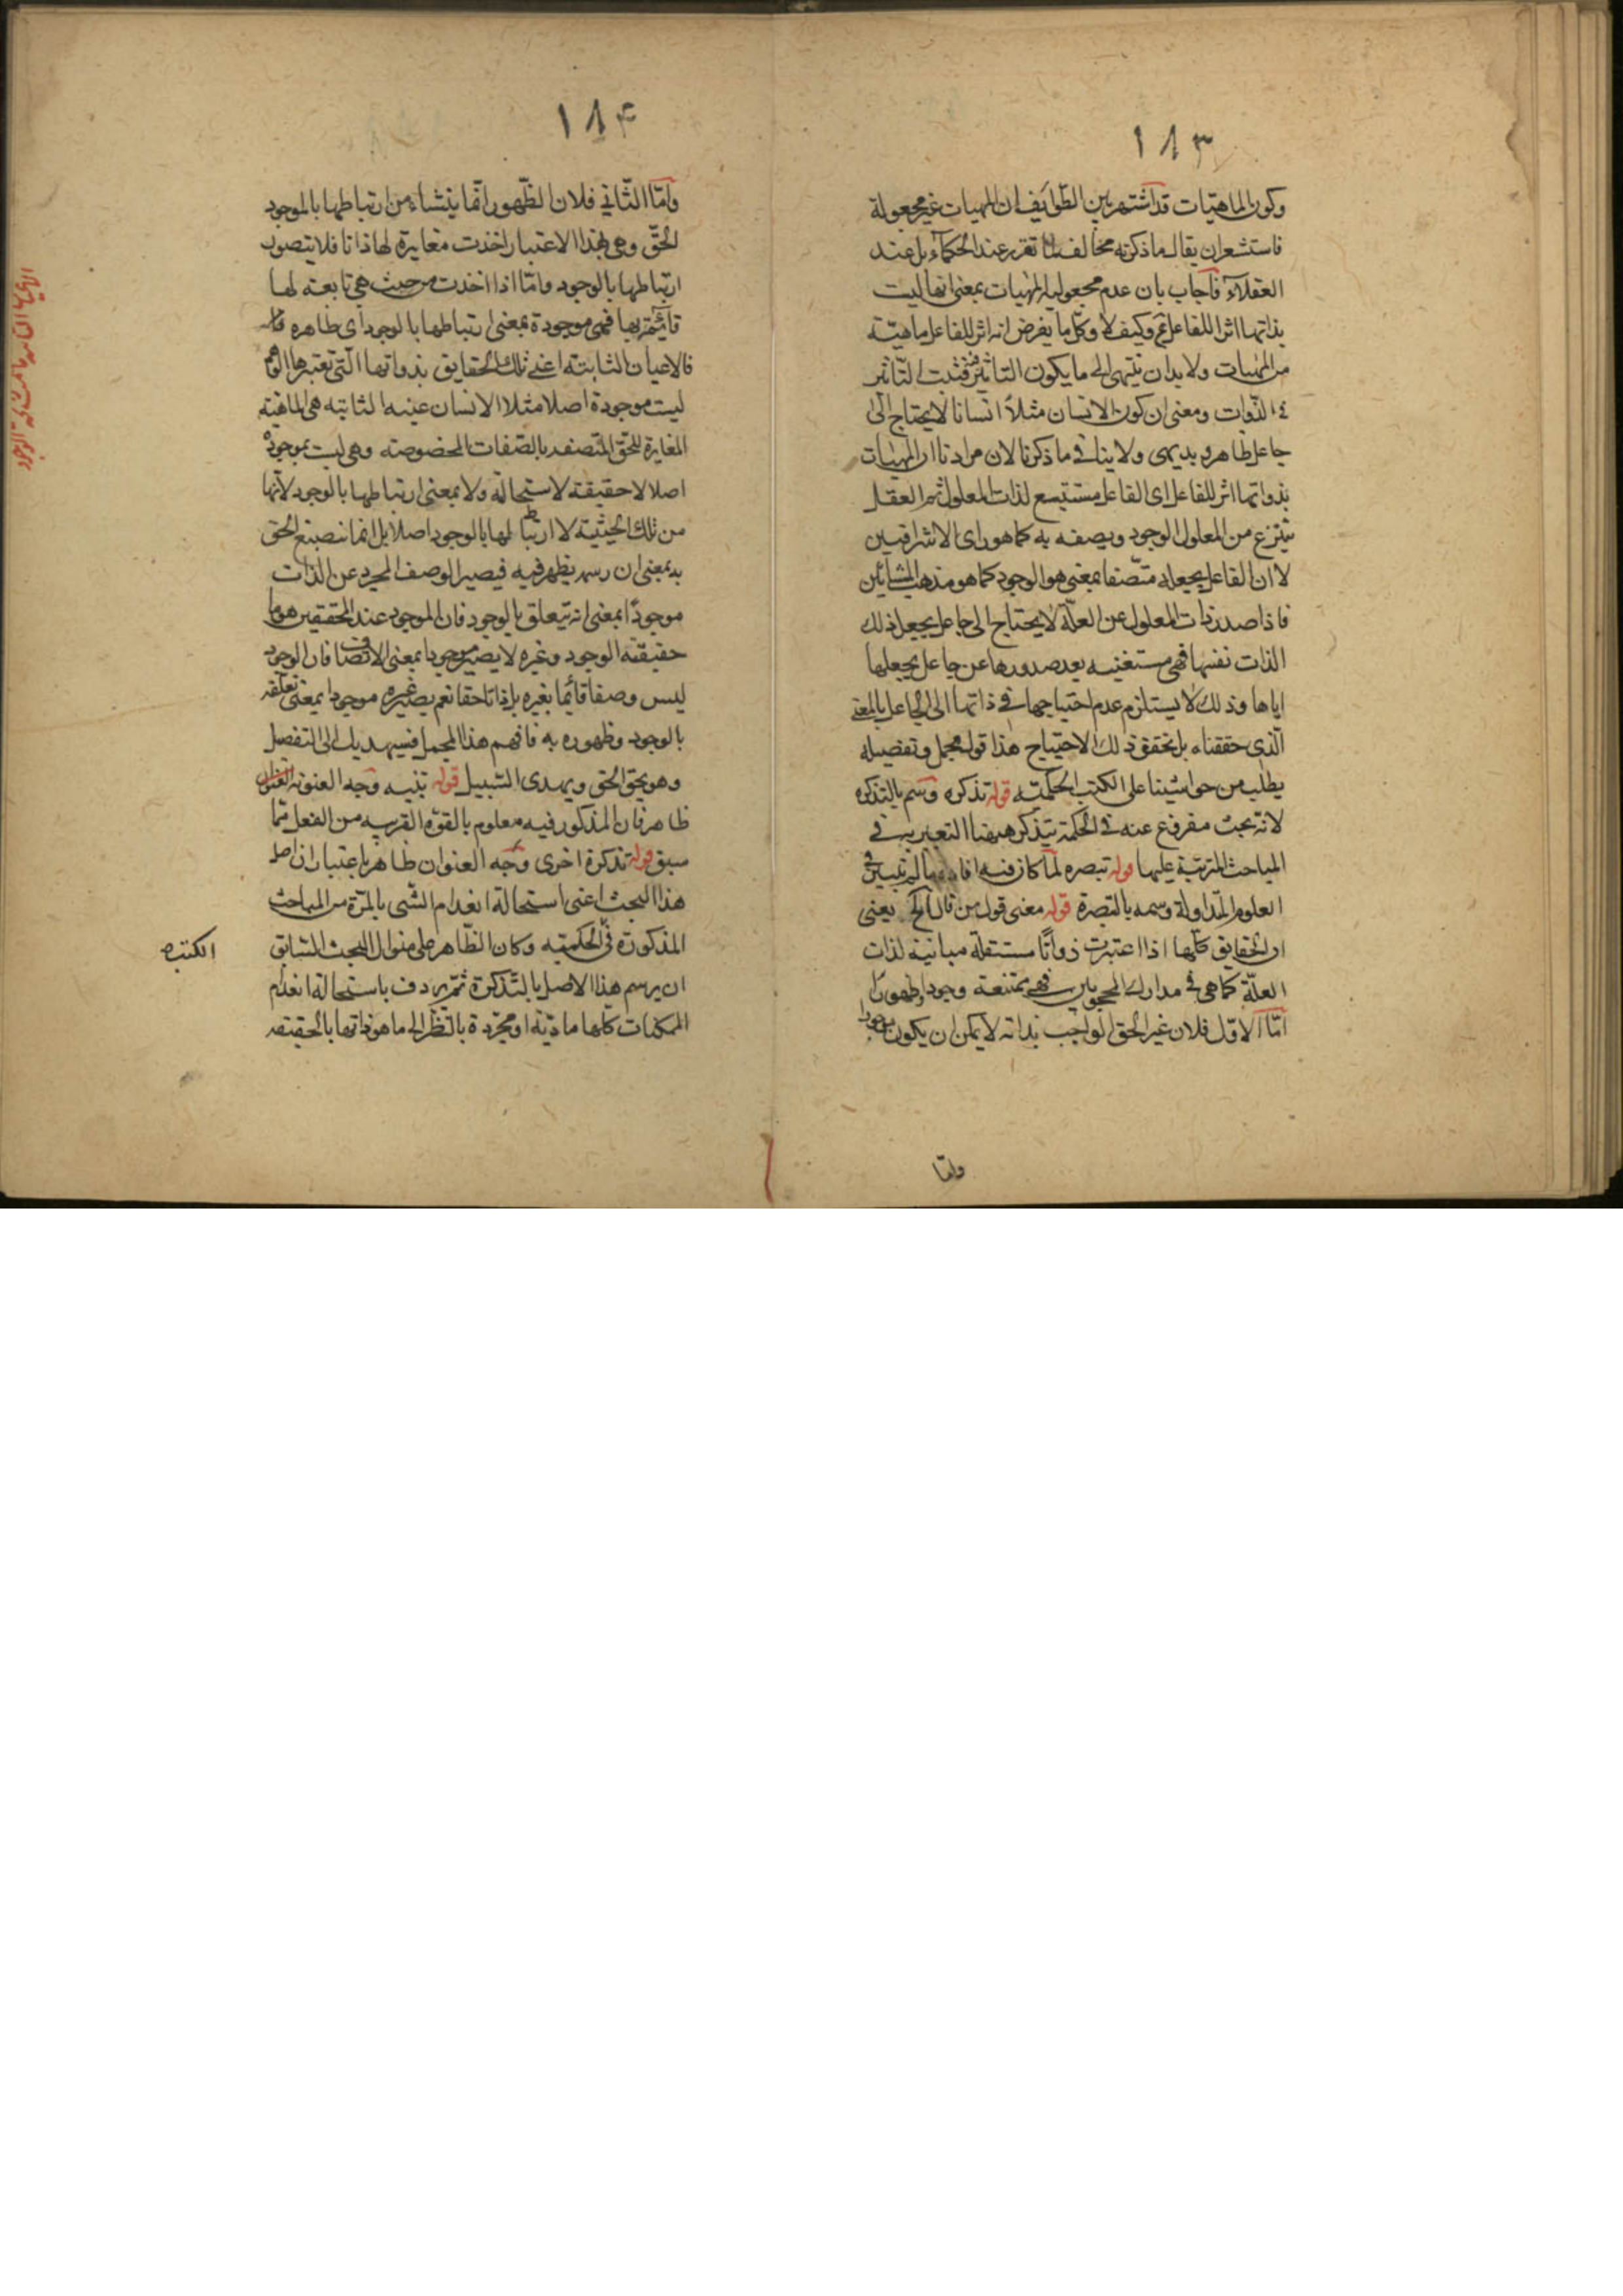 ١٨٣
وكون الماهيّات قد اشتهر بين الطّوائف ان المهيات غير مجعولة
فاستشعر ان يقال ما ذكرته مخالف لما تقرر عند الحكماء بل عند
العقلاء فاجاب بان عدم مجعولية المهيات بمعنى انها ليست
بذاتها اثرا للفاعل ثم وكيف لا وكل ما يفرض انه اثر للفاعل ماهيّة
من المهيات ولا بد ان ينتهى الى ما يكون التاثير فيه فثبت التّاثير
الذّوات ومعنى ان كون الانسان مثلاً انسانا لا يحتاج الى
جاعل ظاهر وبديهى ولا ينافى ما ذكرنا لان مرادنا ان المهيات
بذواتها اثر للفاعل اى الفاعل مستتبع لذات المعلول ثم العقل
ينتزع من المعلول الوجود ويصفه به كما هو راى الاشراقيين
لا ان الفاعل يجعله متّصفا بمعنى هو الوجود كما هو مذهب المشائين
فاذا صدر ذات المعلول عن العلّة لا يحتاج الى جاعل يجعل ذلك
الذات نفسها فهى مستغنيه بعد صدورها عن جاعل يجعلها
اياها وذلك لا يستلزم عدم احتياجها فى ذاتها الى الجاعل بالمعنى
الّذى حققناه بل تحقق ذلك الاحتياج هذا قوله مجمل وتفصيله
يطلب من حواشينا على الكتب الحكميّة قوله تذكره وسم بالتذكره
لانه بحث مفروغ عنه فى الحكمة يتذكر ههنا التعبير به فى
المباحث المترتبة عليها قوله تبصره لما كان فيه
العلوم المتداولة وسمه بالتبصرة قوله معنى قول من قال الخ يعنى
ان الحقايق كلّها اذا اعتبرت ذواتًا مستقلّة مباينة لذات
العلّة كما هى فى مدارك المحجوبين فهى ممتنعة وجودا وظهورًا
امّا الاوّل فلان غير الحق الواجب بذاته لا يمكن ان يكون موجودا
وامّا
١٨۴
وامّا الثّانى فلان الظّهور انّما ينشاء من ارتباطها بالموجود
الحقّ وهى بهذا الاعتبار اخذت مغايرة لها ذاتا فلا يتصور
ارتباطها بالوجود وامّا اذا اخذت من حيث هى تابعة لها
قائمة بها فهى موجودة بمعنى ارتباطها بالوجود اى ظاهره قال
فالاعيان الثابتة اعنى تلك الحقايق بذواتها الّتى تعتبرها الوهم
ليست موجودة اصلا مثلا الانسان عينه الثابته هى الماهيّة
المغايرة للحقّ المتّصفة بالصّفات المخصوصة وهى ليست بموجودة
اصلا لا حقيقة لاستحالة ولا بمعنى ارتباطها بالوجود لانّها
من تلك الحيثيّة لا ارتباط لها بالوجود اصلا بل انما ينصبغ الحق
به بمعنى ان رسمه يظهر فيه فيصير الوصف المجرد عن الذات
موجودًا بمعنى انه يتعلق بالوجود فان الموجود عند المحققين هو ما
حقيقته الوجود وغيره لا يصير موجودا بمعنى الاتصاف فان الوجود
ليس وصفا قائما بغيره بل ذاتا حقا نعم يصير غيره موجودا بمعنى تعلّقه
بالوجود وظهوره به فافهم هذا المجمل فسيهديك الى التفصيل
وهو يحق الحق ويهدى السّبيل قوله تنبيه وجه العنونه
ظاهر فان المذكور فيه معلوم بالقوّة القريبه من الفعل ممّا
سبق قوله تذكرة اخرى وجه العنوان ظاهر باعتبار ان اصل
هذا البحث اعنى استحالة انعدام الشّى بالمرّة من المباحث
المذكورة فى الحكميّه وكان الظّاهر على منوال البحث السّابق
الكتبه
ان يرسم هذا الاصل بالتّذكرة ثمّ يردف باستحالة انعدام
الممكنات كلها ماديّة او مجرّدة بالنّظر الى ما هو ذاتها بالحقيقه